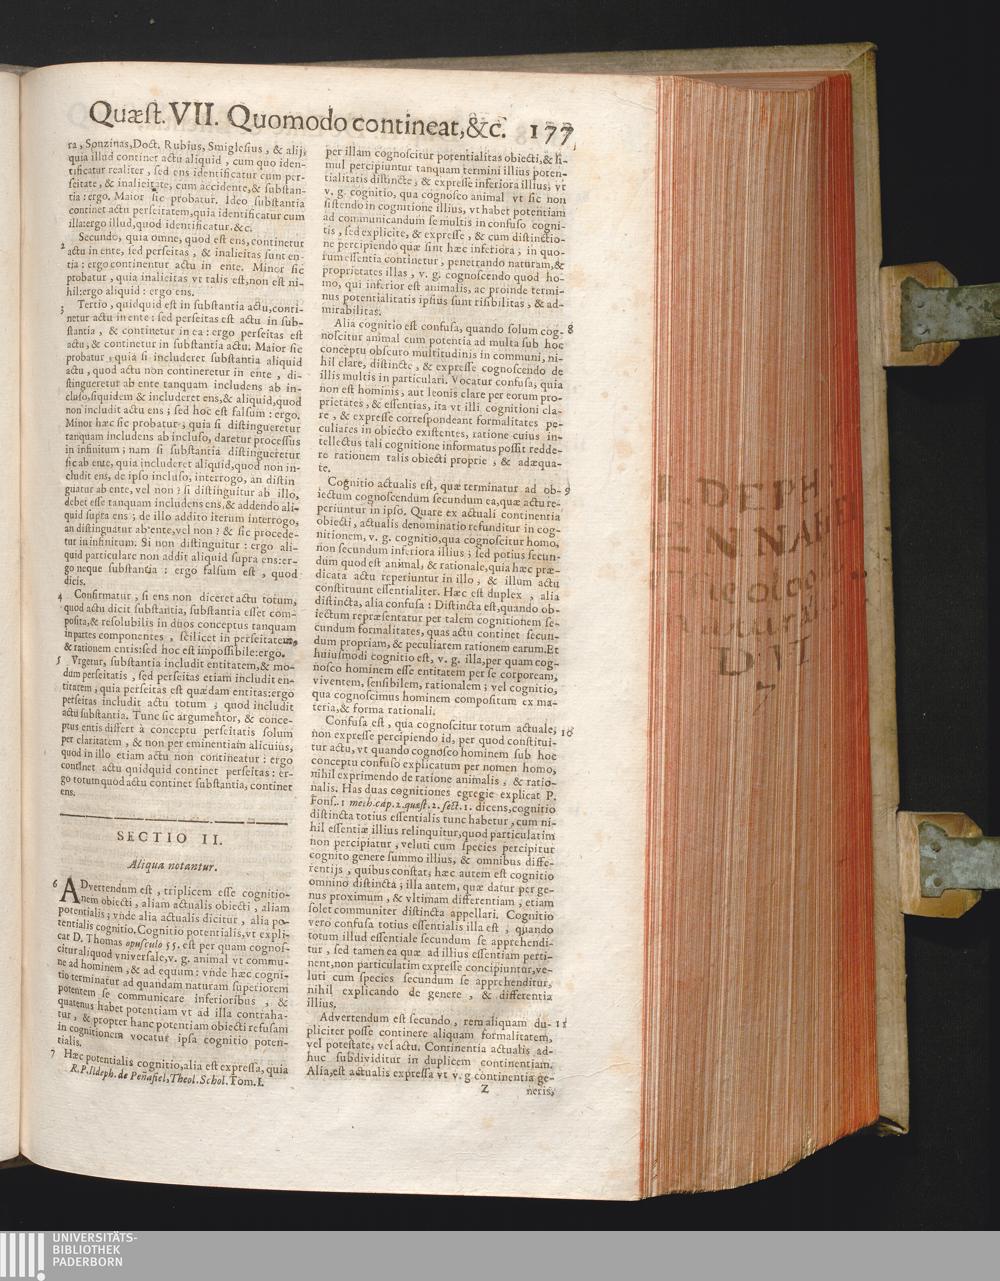 Quæst. VII. Quomodo contineat, &c. 177
ra, Sonzinas, Doct. Rubius, Smiglesius, & alij;
quia illud continet actu aliquid, cum quo iden-
tificatur realiter, sed ens identificatur cum per-
seitate, & inalieitate, cum accidente, & substan-
tia: ergo. Maior sic probatur. Ideo substantia
continet actu perseitatem, quia identificatur cum
illa: ergo illud, quod identificatur. &c.
2 Secundo, quia omne, quod est ens, continetur
actu in ente, sed perseitas, & inalieitas sunt en-
tia: ergo continentur actu in ente. Minor sic
probatur, quia inalieitas vt talis est, non est ni-
hil: ergo aliquid: ergo ens.
3 Tertio, quidquid est in substantia actu, conti-
netur actu in ente: sed perseitas est actu in sub-
stantia, & continetur in ea: ergo perseitas est
actu, & continetur in substantia actu. Maior sic
probatur, quia si includeret substantia aliquid
actu, quod actu non contineretur in ente, di-
stingueretur ab ente tanquam includens ab in-
cluso, siquidem & includeret ens, & aliquid, quod
non includit actu ens; sed hoc est falsum: ergo.
Minor hæc sic probatur; quia si distingueretur
tanquam includens ab incluso, daretur processus
in infinitum; nam si substantia distingueretur
sic ab ente, quia includeret aliquid, quod non in-
cludit ens, de ipso incluso, interrogo, an distin
guatur ab ente, vel non? si distinguitur ab illo,
debet esse tanquam includens ens, & addendo ali-
quid supra ens; de illo addito iterum interrogo,
an distinguatur ab ente, vel non? & sic procede-
tur in infinitum. Si non distinguitur: ergo ali-
quid particulare non addit aliquid supra ens: er-
go neque substantia: ergo falsum est, quod
dicis.
4 Confirmatur, si ens non diceret actu totum,
quod actu dicit substantia, substantia esset com-
posita, & resolubilis in duos conceptus tanquam
in partes componentes, scilicet in perseitatem,
& rationem entis: sed hoc est impossibile: ergo.
5 Vrgetur, substantia includit entitatem, & mo-
dum perseitatis, sed perseitas etiam includit en-
titatem, quia perseitas est quædam entitas: ergo
perseitas includit actu totum; quod includit
actu substantia. Tunc sic argumentor, & conce-
ptus entis differt à conceptu perseitatis solum
per claritatem, & non per eminentiam alicuius,
quod in illo etiam actu non contineatur: ergo
continet actu quidquid continet perseitas: er-
go totum quod actu continet substantia, continet
ens.
SECTIO II.
Aliqua notantur.
6 ADvertendum est, triplicem esse cognitio-
nem obiecti, aliam actualis obiecti, aliam
potentialis; vnde alia actualis dicitur, alia po-
tentialis cognitio. Cognitio potentialis, vt expli-
cat D. Thomas opusculo 55. est per quam cognos-
citur aliquod vniversale, v. g. animal vt commu-
ne ad hominem, & ad equum: vnde hæc cogni-
tio terminatur ad quandam naturam superiorem
potentem se communicare inferioribus, &
quatenus habet potentiam vt ad illa contraha-
tur, & propter hanc potentiam obiecti refusam
in cognitionem vocatur ipsa cognitio poten-
tialis.
7 Hæc potentialis cognitio, alia est expressa, quia
R.P. Ildeph. de Peñafiel, Theol. Schol. Tom. I.
per illam cognoscitur potentialitas obiecti, & si-
mul percipiuntur tanquam termini illius poten-
tialitatis distincte, & expresse inferiora illius; vt
v. g. cognitio, qua cognosco animal vt sic non
sistendo in cognitione illius, vt habet potentiam
ad communicandum se multis in confuso cogni-
tis, sed explicite, & expresse, & cum distinctio-
ne percipiendo quæ sint hæc inferiora; in quo-
rum essentia continetur, penetrando naturam, &
proprietates illas, v. g. cognoscendo quod ho-
mo, qui inferior est animalis, ac proinde termi-
nus potentialitatis ipsius sunt risibilitas, & ad-
mirabilitas.
Alia cognitio est confusa, quando solum cog- 8
noscitur animal cum potentia ad multa sub hoc
conceptu obscuro multitudinis in communi, ni-
hil clare, distincte, & expresse cognoscendo de
illis multis in particulari. Vocatur confusa, quia
non est hominis, aut leonis clare per eorum pro-
prietates, & essentias, ita vt illi cognitioni cla-
re, & expresse correspondeant formalitates pe-
culiares in obiecto existentes, ratione cuius in-
tellectus tali cognitione informatus possit redde-
re rationem talis obiecti proprie, & adæqua-
te.
Cognitio actualis est, quæ terminatur ad ob- 9
iectum cognoscendum secundum ea, quæ actu re-
periuntur in ipso. Quare ex actuali continentia
obiecti, actualis denominatio refunditur in cog-
nitionem, v. g. cognitio, qua cognoscitur homo,
non secundum inferiora illius; sed potius secun-
dum quod est animal, & rationale, quia hæc præ-
dicata actu reperiuntur in illo, & illum actu
constituunt essentialiter. Hæc est duplex, alia
distincta, alia confusa: Distincta est, quando ob-
iectum repræsentatur per talem cognitionem se-
cundum formalitates, quas actu continet secun-
dum propriam, & peculiarem rationem earum. Et
huiusmodi cognitio est, v. g. illa, per quam cog-
nosco hominem esse entitatem per se corpoream,
viventem, sensibilem, rationalem; vel cognitio,
qua cognoscimus hominem compositum ex ma-
teria, & forma rationali.
Confusa est, qua cognoscitur totum actuale, 10
non expresse percipiendo id, per quod constitui-
tur actu, vt quando cognosco hominem sub hoc
conceptu confuso explicatum per nomen homo,
nihil exprimendo de ratione animalis, & ratio-
nalis. Has duas cognitiones egregie explicat P.
Fons. 1 meth. cap. 2. quæst. 2. sect. 1. dicens, cognitio
distincta totius essentialis tunc habetur, cum ni-
hil essentiæ illius relinquitur, quod particulatim
non percipiatur, veluti cum species percipitur
cognito genere summo illius, & omnibus diffe-
rentijs, quibus constat; hæc autem est cognitio
omnino distincta; illa autem, quæ datur per ge-
nus proximum, & vltimam differentiam, etiam
solet communiter distincta appellari. Cognitio
vero confusa totius essentialis illa est, quando
totum illud essentiale secundum se apprehendi-
tur, sed tamen ea quæ ad illius essentiam perti-
nent, non particulatim expresse concipiuntur, ve-
luti cum species secundum se apprehenditur,
nihil explicando de genere, & differentia
illius.
Advertendum est secundo, rem aliquam du- 11
pliciter posse continere aliquam formalitatem,
vel potestate, vel actu. Continentia actualis ad-
huc subdividitur in duplicem continentiam.
Alia, est actualis expressa vt v. g continentia ge-
Z neris,
DEPH
ENNAF
D. VI
UNIVERSITÄTS-
BIBLIOTHEK
PADERBORN